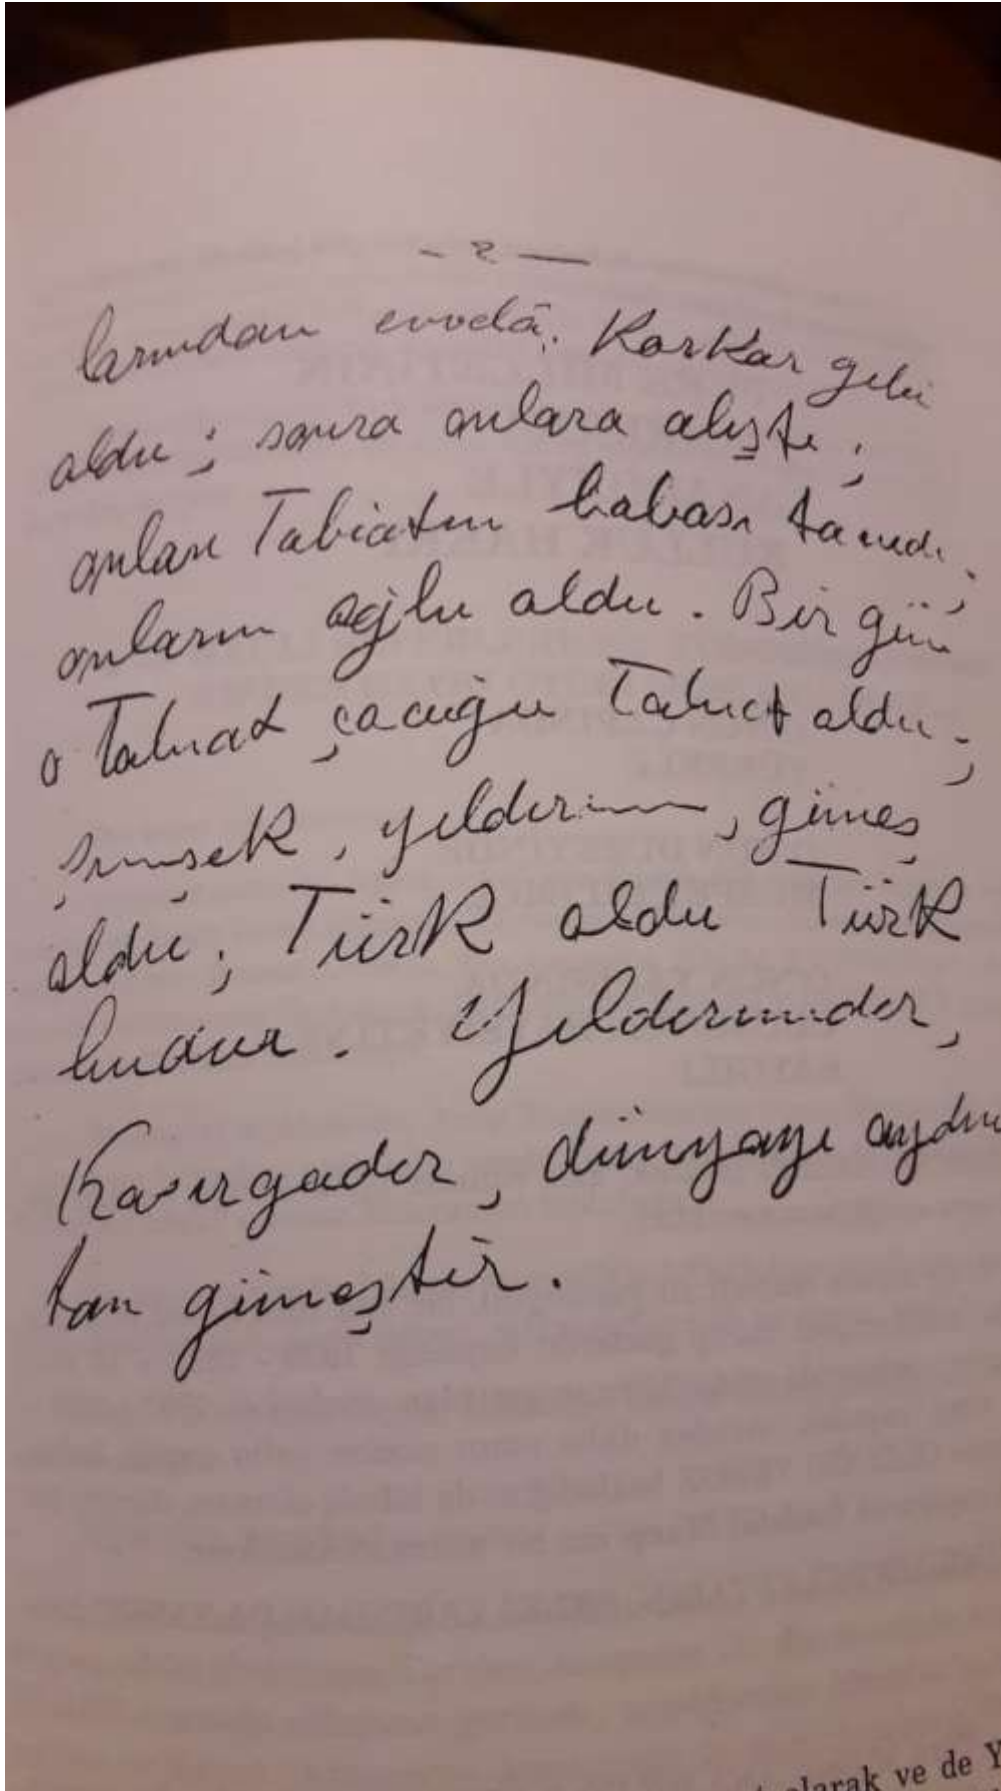 - 2 -
larından evvelâ. Korkar gibi
oldu; sonra onlara alıştı;
onları Tabiatın babası tanıdı;
onların oğlu oldu. Bir gün
o Tabiat çocuğu Tabiat oldu;
şimşek, yıldırım, güneş
oldu; Türk oldu Türk
budur. Yıldırımdır,
Kasırgadır, dünyayı aydın
tan güneştir.
olarak ve de Y